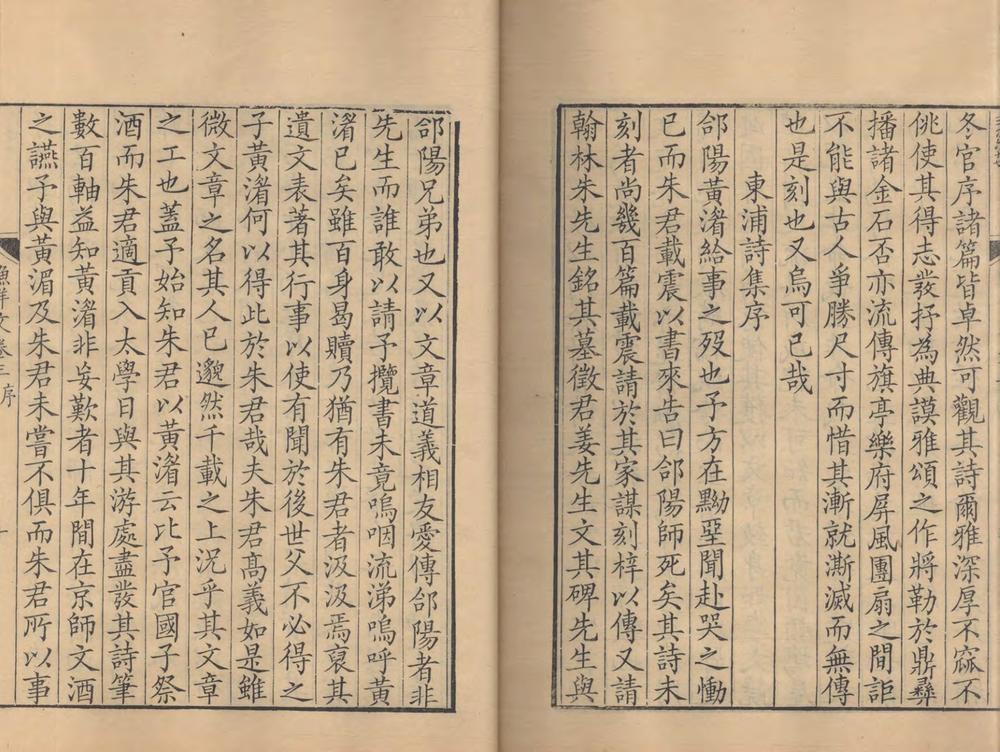 冬官序諸篇皆卓然可觀其詩爾雅深厚不窳不
佻使其得志發抒為典謨雅頌之作將勒於鼎彞
播諸金石否亦流傳旗亭樂府屏風團扇之間詎
不能與古人爭勝尺寸而惜其漸就澌滅而無傳
也是刻也又烏可已哉
東浦詩集序
郃陽黃湄給事之歿也予方在黝堊聞赴哭之慟
已而朱君載震以書來告曰郃陽師死矣其詩未
刻者尚幾百篇載震請於其家謀刻梓以傳又請
翰林朱先生銘其墓徵君姜先生文其碑先生與
郃陽兄弟也又以文章道義相友愛傳郃陽者非
先生而誰敢以請予攬書未竟嗚咽流涕嗚呼黃
湄已矣雖百身曷贖乃猶有朱君者汲汲焉裒其
遺文表著其行事以使有聞於後世父不必得之
子黃湄何以得此於朱君哉夫朱君高義如是雖
微文章之名其人已邈然千載之上況乎其文章
之工也蓋予始知朱君以黃湄云比予官國子祭
酒而朱君適貢入太學日與其游處盡發其詩筆
數百軸益知黃湄非妄歎者十年間在京師文酒
之讌予與黃湄及朱君未嘗不俱而朱君所以事
漁洋文 卷三 序